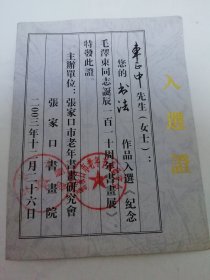 入選證
東正中 先生（女士）：
您的 书法 作品入選《紀念
毛澤東同志誕辰一百一十周年書畫展》
特發此證
主辦單位：張家口市老年書畫研究會
張家口書畫院
二〇〇三年十二月二十六日